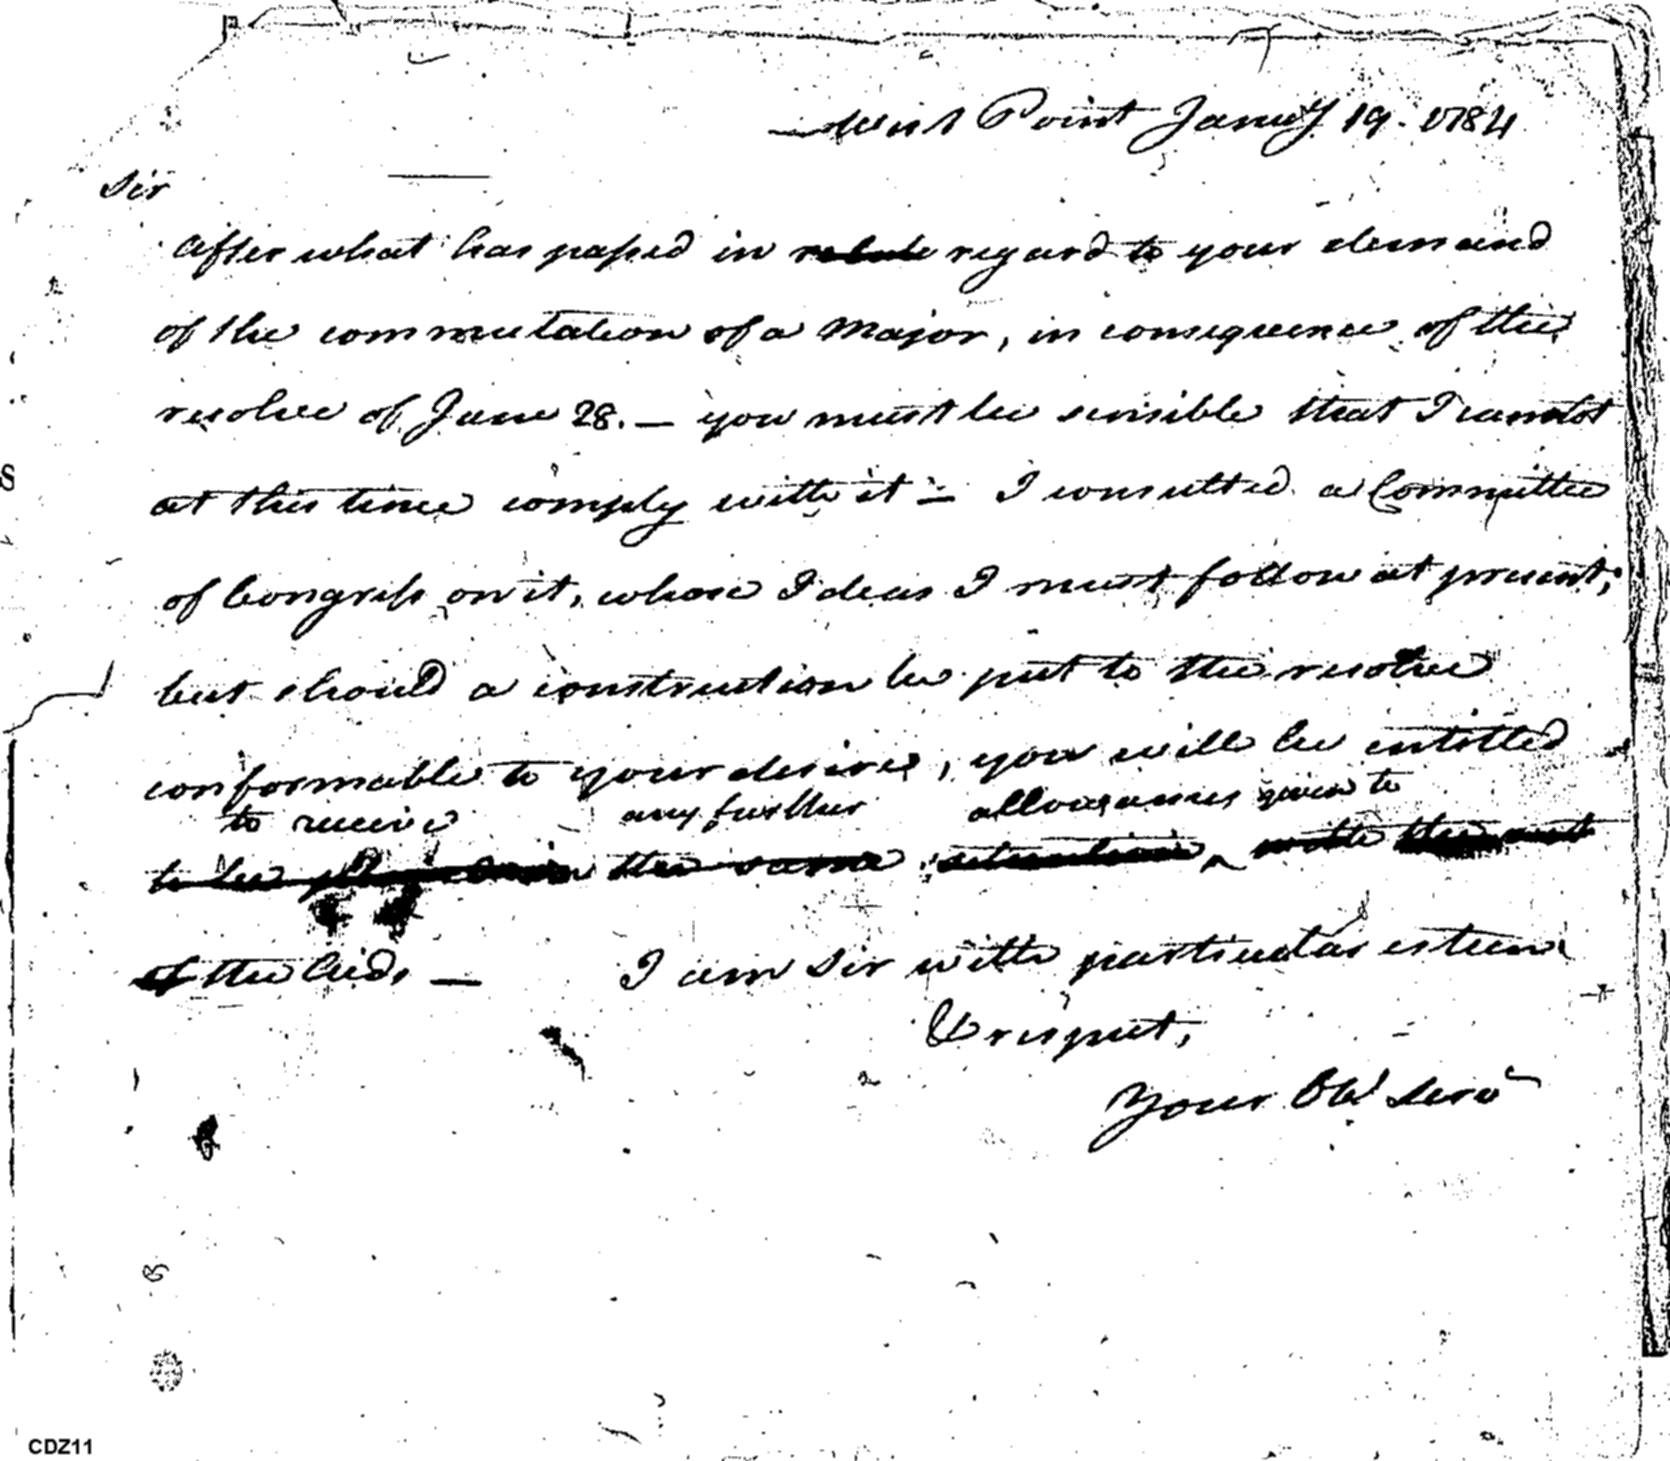 West Point Janu<sup>y</sup> 19. 1784
Sir
After what has passed in regard to your demand
of the commutation of a Major, in consequence of the
resolve of June 28. — you must be sensible that I cannot
at this time comply with it — I consulted a Committee
of Congress on it, whose Ideas I must follow at present,
but should a construction be put to the resolve
conformable to your desires, you will be entitled
to receive any further allowances given to
to be the same situation, with
of the Aids — I am Sir with particular esteem
& respect,
Your Ob<sup>t</sup> Serv<sup>t</sup>
S
CDZ11